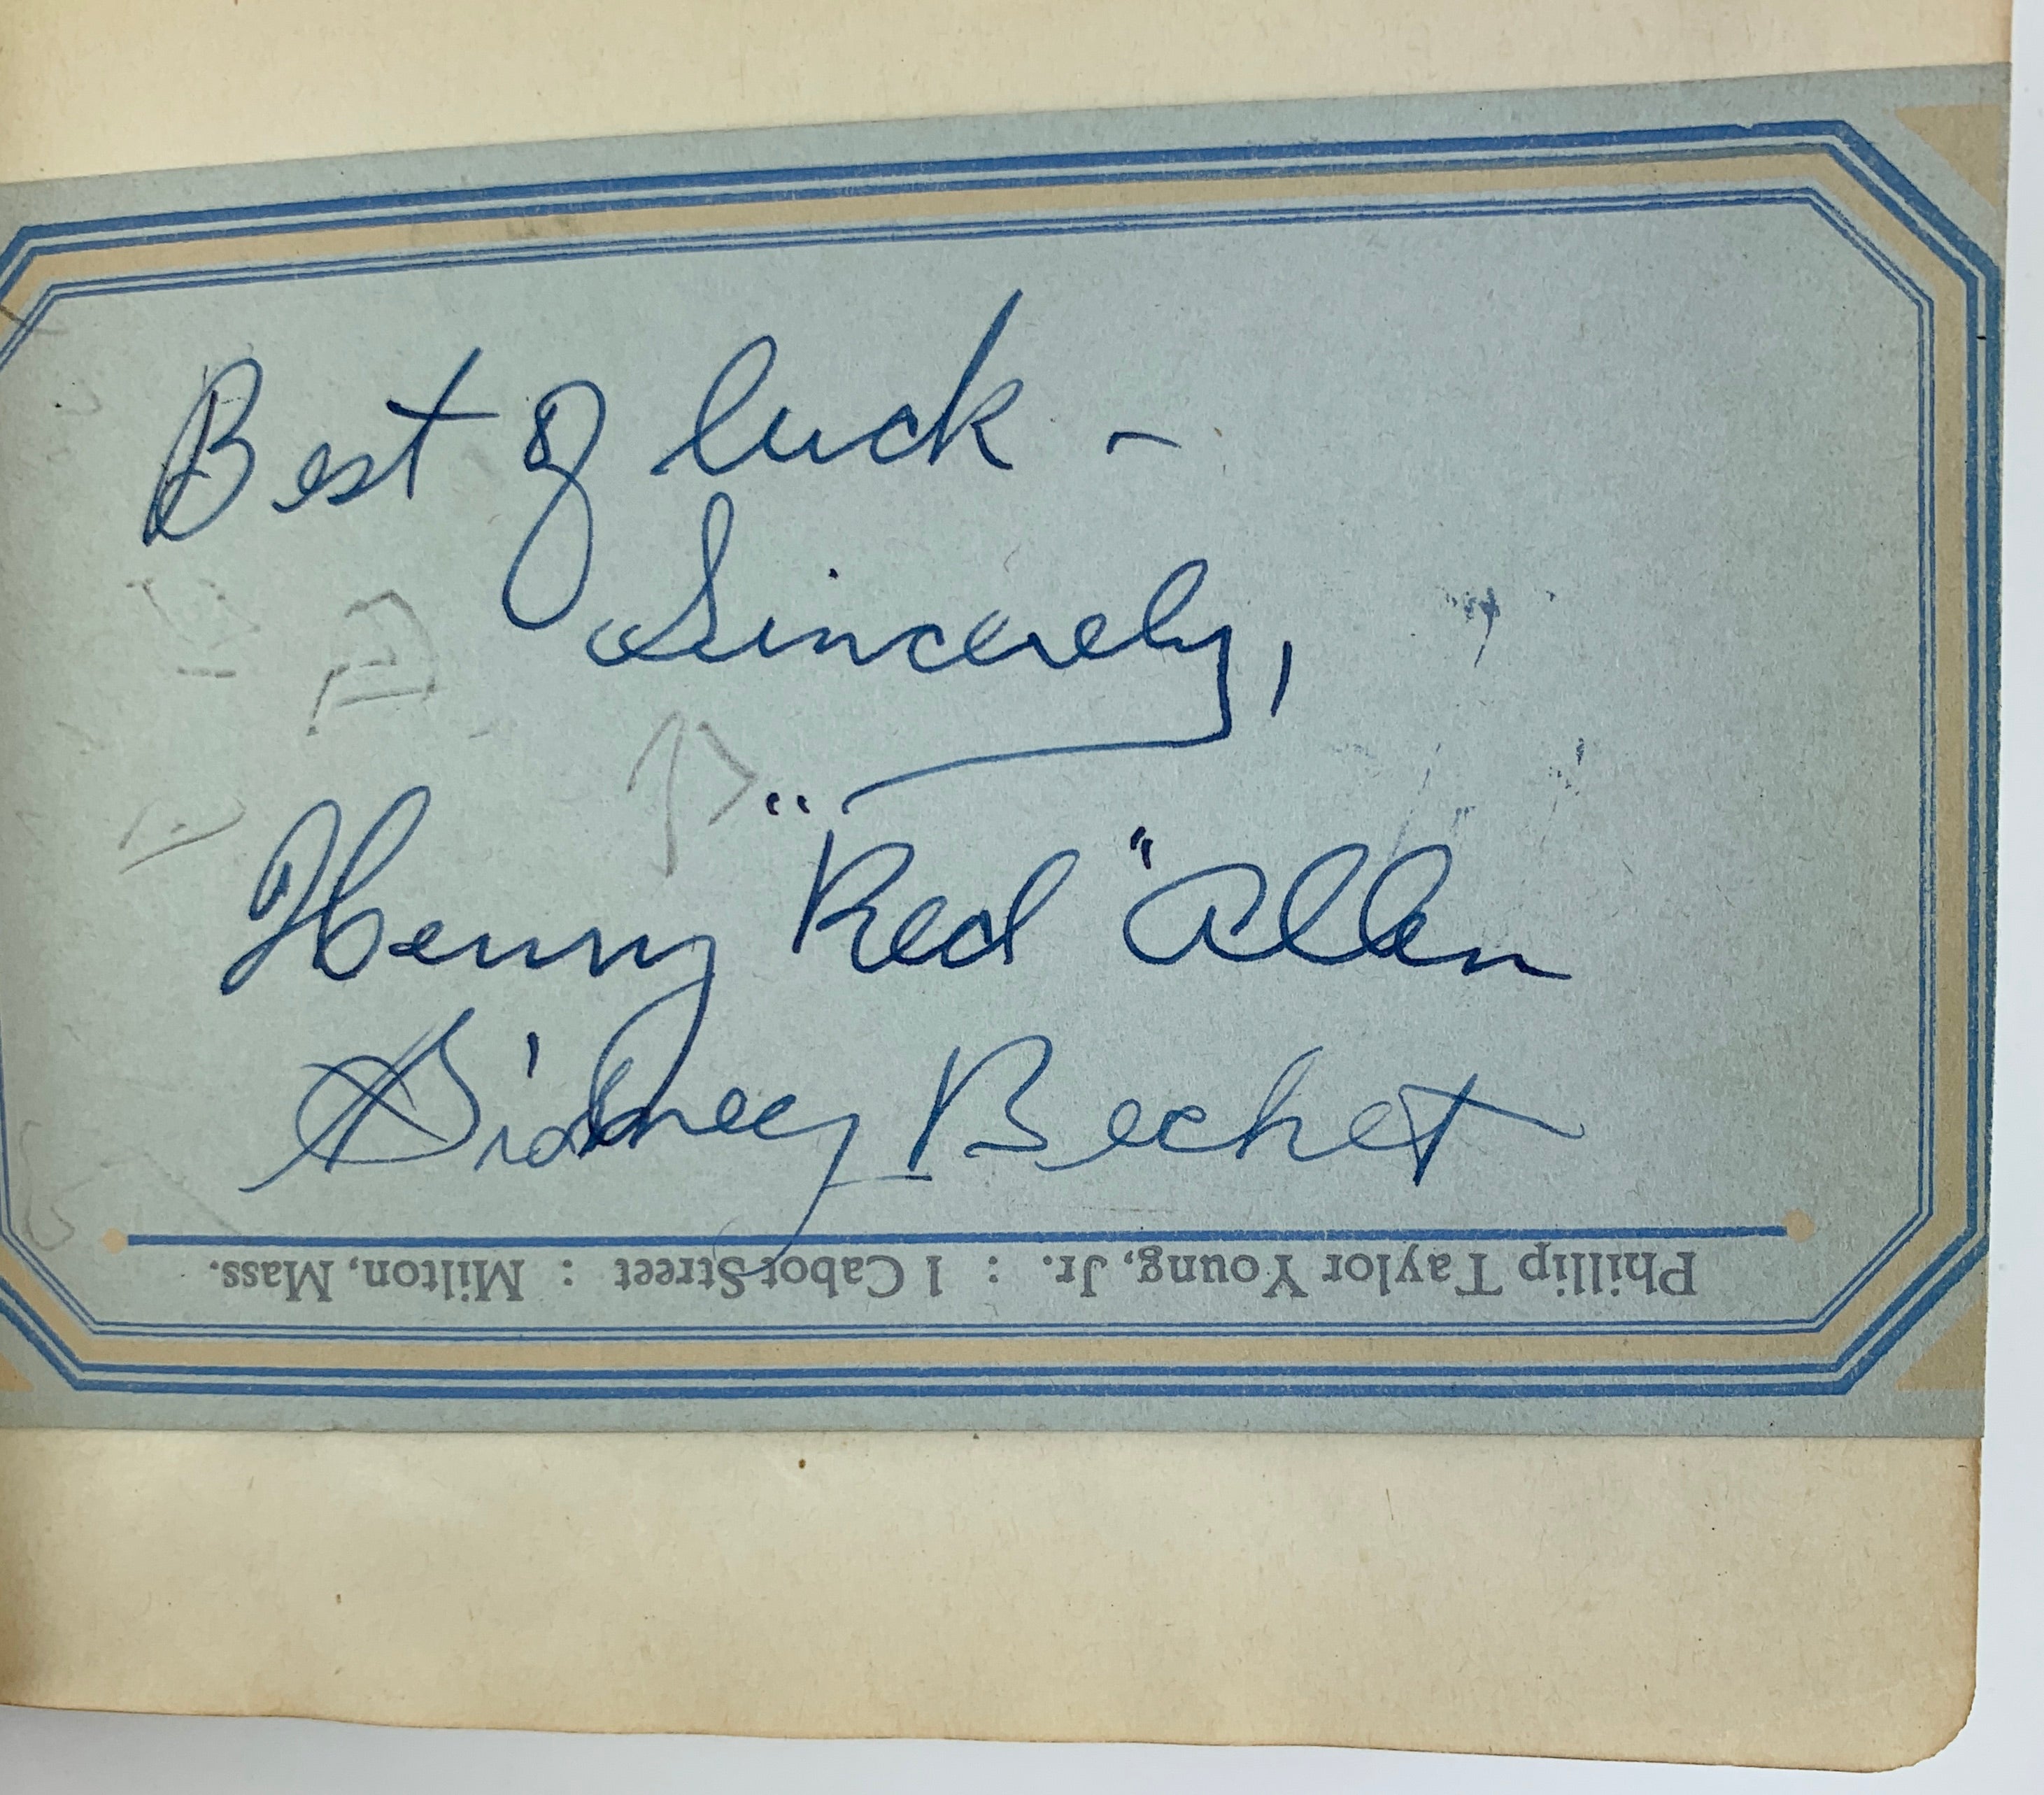 Best of luck -
Sincerely,
Henry "Red" Allen
Sidney Bechet
Phillip Taylor Young, Jr. : 1 Cabot Street : Milton, Mass.